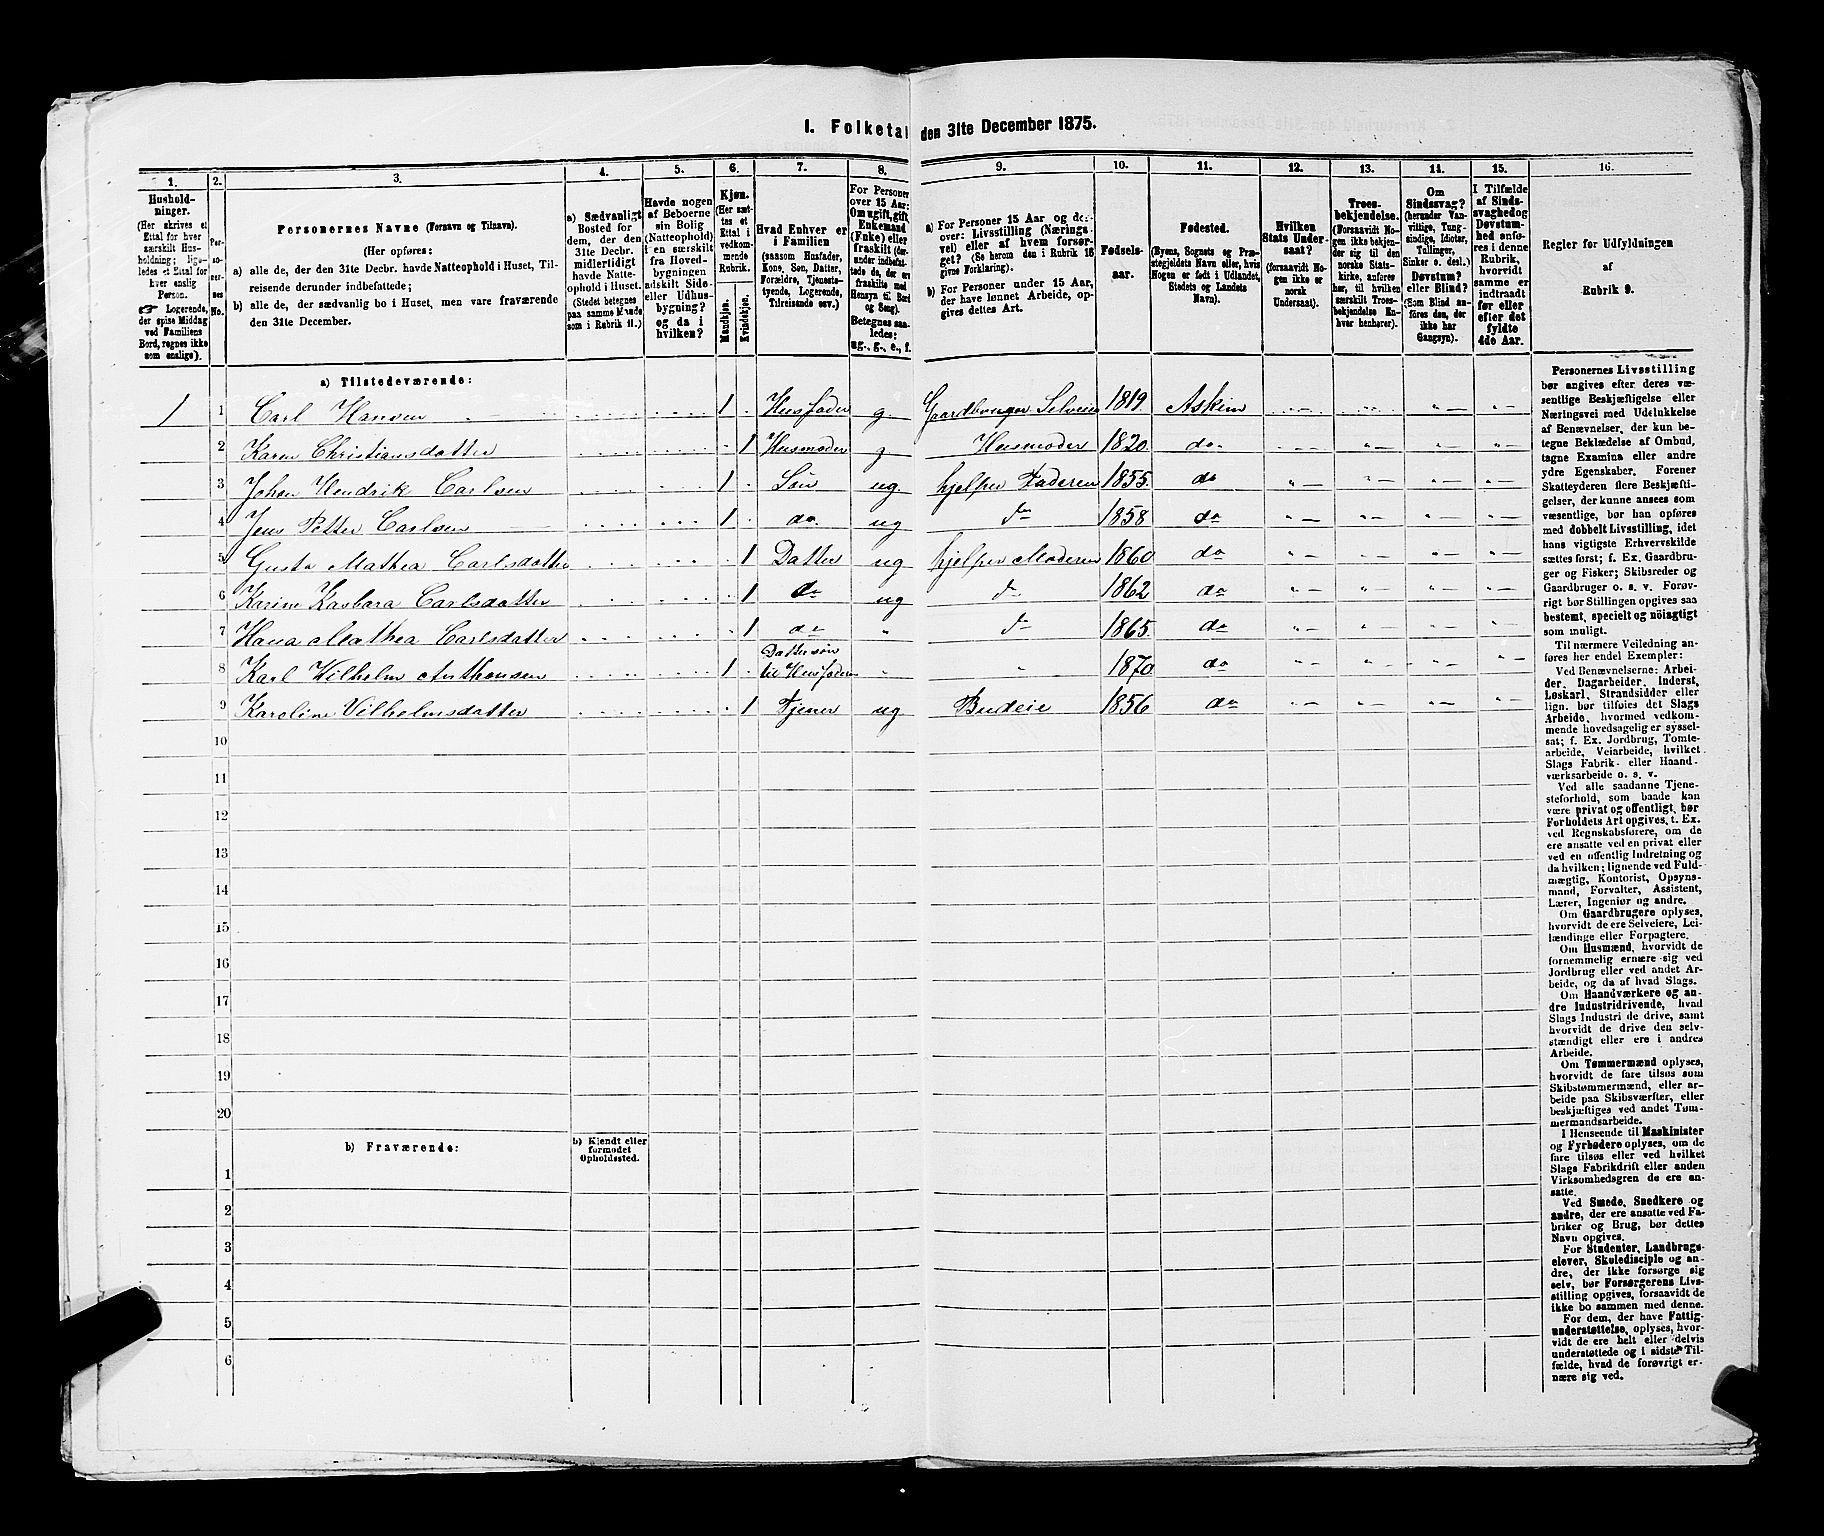 I. Folketal den 31te December 1875.
1.
Husholdninger.
(Her skrives et
Ettal for hver
særskilt Husholdning; ligeledes
et Ettal for
hver enslig
Person.
☞ Logerende,
der spise Middag
ved Familiens
Bord, regnes ikke
som enslige).
2.
Personernes
No.
3.
Personernes Navne (Fornavn og Tilnavn).
(Her opføres:
a) alle de, der den 31te Decbr. havde Natteophold i Huset, Tilreisende
derunder indbefattede;
b) alle de, der sædvanlig bo i Huset, men vare fraværende
den 31te December.
4.
a) Sædvanligt
Bosted for
dem, der den
31te Decbr.
midlertidigt
havde Natteophold
i Huset.
(Stedet betegnes
paa samme Maade
som i Rubrik 11.)
5.
Havde nogen
af Beboerne
sin Bolig
(Natteophold)
i en særskilt
fra Hovedbygningen
adskilt Sideeller
Udhusbygning?
og da i
hvilken?
6.
Kjøn.
(Her sættes
et
Ettal i
vedkommende
Rubrik.
Mandkjøn.
Kvindekjøn.
7.
Hvad Enhver er
i Familien
(saasom Husfader,
Kone, Søn, Datter,
Forældre, Tjenestetyende,
Logerende,
Tilreisende osv.)
8.
For Personer
over 15 Aar:
Om ugift, gift,
Enkemand
(Enke) eller
fraskilt (derunder
indbefattede
de, der ere
fraskilte med
Hensyn til Bord
og Seng).
Betegnes saaledes:
ug., g., e., f.
9.
a) For Personer 15 Aar og derover:
Livsstilling (Næringsvei)
eller af hvem forsørget?
(Se herom den i Rubrik 16
givne Forklaring).
b) For Personer under 15 Aar,
der have lønnet Arbeide, opgives
dettes Art.
10.
Fødselsaar.
11.
Fødested.
(Byens, Sognets og Præstegjeldets
Navn eller, hvis
Nogen er født i Udlandet,
Stedets og Landets
Navn).
12.
Hvilken
Stats Undersaat?
(forsaavidt Nogen
ikke er
norsk
Undersaat).
13.
Troesbekjendelse.
(Forsaavidt Nogen
ikke bekjender
sig til den
norske Statskirke,
anføres
her, til hvilken
særskilt Troesbekjendelse
Enhver
henhører).
14.
Om
Sindssvag?
(herunder Vanvittige,
Tungsindige,
Idioter,
Tullinger,
Sinker o. desl.)
Døvstum?
eller Blind?
(Som Blind anføres
den, der
ikke har
Gangsyn).
15.
I Tilfælde
af Sindssvaghed
og
Døvstumhed
anføres
i denne
Rubrik,
hvorvidt
samme er
indtraadt
før eller
efter det
fyldte
4de Aar.
16.
Regler for Udfyldningen
af
Rubrik 9.
a) Tilstedeværende:
1 1 Carl Hansen 1 Husfader g. Gaardbruger Selveier 1819. Askim
2 Karen Christiansdatter 1 Husmoder g Husmoder 1820. do
3 Johan Hendrik Carlsen 1 Søn ug. hjelper Faderen 1855. do
4 Jens Petter Carlsen 1 do. ug do 1858 do
5 Gusta Mathea Carlsdatter 1 Datter ug hjelper Moderen 1860 do
6 Karine Barbara Carlsdatter 1 do ug do 1862 do
7 Hana Mathea Carlsdatter 1 do " do 1865. do
8 Karl Wilhelm Anthonsen 1 Dattersøn til Husfaderen " " 1870 do
9 Karoline Vilhelmsdatter 1 Tjener ug. Budeie 1856 do
10
11
12
13
14
15
16
17
18
19
20
b) Fraværende:
b) Kjendt eller
formodet
Opholdssted.
1
2
3
4
5
6
Personernes Livsstilling
bør angives efter deres væsentlige
Beskjæftigelse eller
Næringsvei med Udelukkelse
af Benævnelser, der kun betegne
Beklædelse af Ombud,
tagne Examina eller andre
ydre Egenskaber. Forener
Skatteyderen flere Beskjæftigelser,
der kunne ansees som
væsentlige, bør han opføres
med dobbelt Livsstilling, idet
hans vigtigste Erhvervskilde
sættes først; f. Ex. Gaardbruger
og Fisker; Skibsreder og
Gaardbruger o. s. v. Forøvrigt
bør Stillingen opgives saa
bestemt, specielt og nöiagtigt
som muligt.
Til nærmere Veiledning anføres
her endel Exempler:
Ved Benævnelserne: Arbeider,
Dagarbeider, Inderst,
Løskarl, Strandsidder eller
lign. bør tilføies det Slags
Arbeide, hvormed vedkommende
hovedsagelig er sysselsat;
f. Ex. Jordbrug, Tomtearbeide,
Veiarbeide, hvilket
Slags Fabrik- eller Haandværksarbeide
o. s. v.
Ved alle saadanne Tjenesteforhold,
som baade kan
være privat og offentligt, bør
Forholdets Art opgives, t. Ex.
ved Regnskabsførere, om de
ere ansatte ved en privat eller
ved en offentlig Indretning og
da hvilken; lignende ved Fuldmægtig,
Kontorist, Opsynsmand,
Forvalter, Assistent,
Lærer, Ingeniør og andre.
Om Gaardbrugere oplyses,
hvorvidt de ere Selveiere, Leilændinge
eller Forpagtere.
Om Husmænd, hvorvidt de
fornemmelig ernære sig ved
Jordbrug eller ved andet Arbeide,
og da af hvad Slags.
Om Haandværkere og andre
Industridrivende, hvad
Slags Industri de drive, samt
hvorvidt de drive den selvstændigt
eller ere i andres
Arbeide.
Om Tømmermænd oplyses,
hvorvidt de fare tilsøs som
Skibstømmermænd, eller arbeide
paa Skibsværfter, eller
beskjæftiges ved andet Tømmermandsarbeide.
I Henseende til Maskinister
og Fyrbødere oplyses, om de
fare tilsøs eller ved hvilket
Slags Fabrikdrift eller anden
Virksomhedsgren de ere ansatte.
Ved Smede, Snedkere og
andre, der ere ansatte ved Fabriker
og Brug, bør dettes
Navn opgives.
For Studenter, Landbrugselever,
Skoledisciple og andre,
der ikke forsørge sig
selv, bør Forsørgerens Livsstilling
opgives, forsaavidt de
ikke bo sammen med denne.
For dem, der have Fattigunderstøttelse,
oplyses, hvorvidt
de ere helt eller delvis
understøttede og i sidste Tilfælde,
hvad de forøvrigt ernære
sig ved.